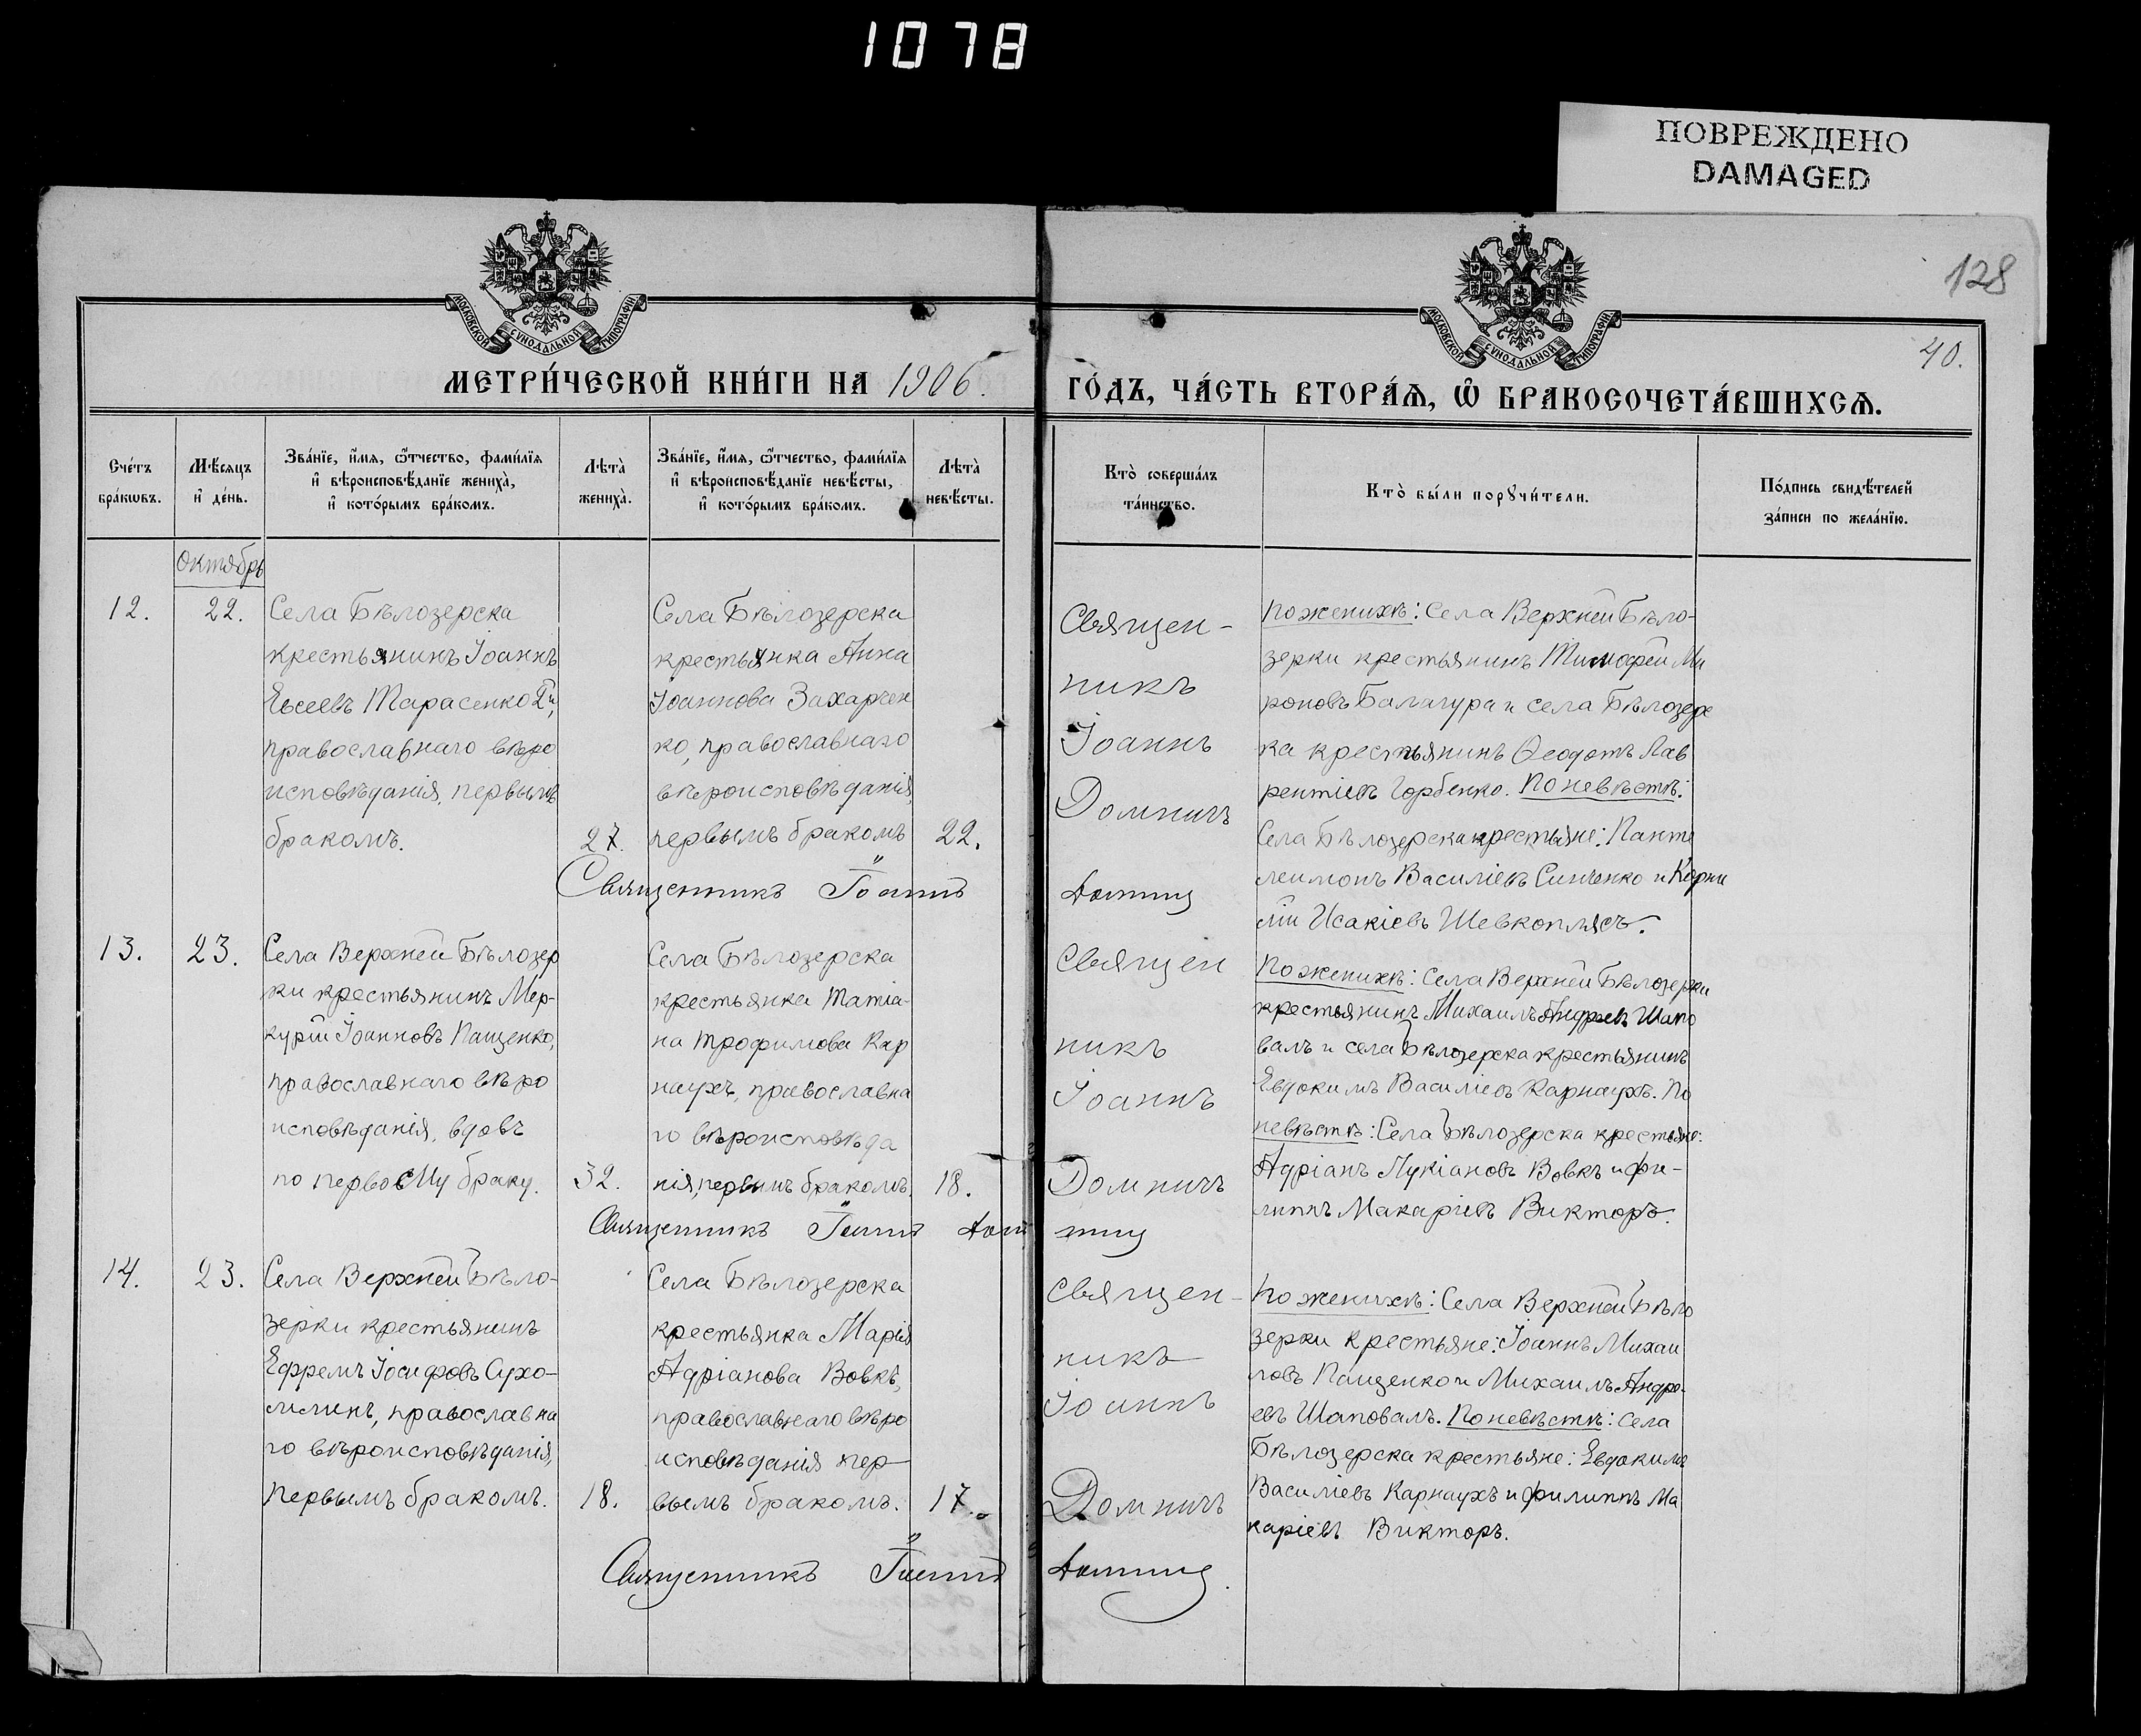 1078
ПОВРЕЖДЕНО
DAMAGED
128
40.
МОСКОВСКОЙ СѴНОДАЛЬНОЙ ТИПОГРАФІИ
МОСКОВСКОЙ СѴНОДАЛЬНОЙ ТИПОГРАФІИ
МЕТРИ́ЧЕСКОЙ КНИ́ГИ НА 1906.
ГО́ДЪ, ЧА́СТЬ ВТОРА́Ѧ, Ѽ БРАКОСОЧЕТА́ВШИХСѦ.
Сче́тъ
бра́кѡвъ.
Мѣ́сяцъ
и҆ де́нь.
Зва́нїе, и҆́мя, ѻ҆́тчество, фами́лїя
и҆ вѣроисповѣ́данїе жениха̀,
и҆ кото́рымъ бра́комъ.
Лѣта̀
жениха̀.
Зва́нїе, и҆́мя, ѻ҆́тчество, фами́лїя
и҆ вѣроисповѣ́данїе невѣ́сты,
и҆ кото́рымъ бра́комъ.
Лѣта̀
невѣ́сты.
Кто̀ соверша́лъ
та́инство.
Кто̀ бы́ли порꙋчи́тели.
По́дпись свидѣ́телей
за́писи по жела́нїю.
Октябрь
12.
22.
Села Бѣлозерска
крестьянинъ Іоаннъ
Евсеевъ Тарасенко 2й,
православнаго вѣро
исповѣданія, первымъ
бракомъ.
27.
Села Бѣлозерска
крестьянка Анна
Іоаннова Захарчен
ко, православнаго
вѣроисповѣданія,
первымъ бракомъ
22.
Священ-
никъ
Іоаннъ
Домничъ
По женихѣ: Села Верхней Бѣло-
зерки крестьянинъ Тимофей Ми
роновъ Балагура и села Бѣлозерс
ка крестьянинъ Ѳеодотъ Лав
рентіевъ Горбенко. По невѣстѣ:
Села Бѣлозерска крестьяне: Панте
леимонъ Василіевъ Синченко и Корни
лій Исакіевъ Шевкоплясъ.
Священникъ Іоаннъ Домничъ
13.
23.
Села Верхней Бѣлозер
ки крестьянинъ Мер-
курій Іоанновъ Пащенко,
православнаго вѣро
исповѣданія, вдовъ
по первому браку.
32.
Села Бѣлозерска
крестьянка Татіа-
на Трофимова Кар
наухъ, православна
го вѣроисповѣда
нія, первымъ бракомъ.
18.
Священ
никъ
Іоаннъ
Домничъ
По женихѣ: Села Верхней Бѣлозерки
крестьянинъ Михаилъ Андреевъ Шапо
валъ и села Бѣлозерска крестьянинъ
Евдокимъ Василіевъ Карнаухъ. По
невѣстѣ: Села Бѣлозерска крестьяне:
Адріанъ Лукіановъ Вовкъ и Фи-
липпъ Макаріевъ Викторъ.
Священникъ Іоаннъ Домничъ
14.
23.
Села Верхней Бѣло-
зерки крестьянинъ
Ефремъ Іосифовъ Сухо-
млинъ, православна
го вѣроисповѣданія,
первымъ бракомъ.
18.
Села Бѣлозерска
крестьянка Марія
Адріанова Вовкъ,
православнаго вѣро
исповѣданія пер
вымъ бракомъ.
17.
Священ-
никъ
Іоаннъ
Домничъ
По женихѣ: Села Верхней Бѣло
зерки крестьяне: Іоаннъ Михаи
ловъ Пащенко и Михаилъ Андре-
евъ Шаповалъ. По невѣстѣ: Села
Бѣлозерска крестьяне: Евдокимъ
Василіевъ Карнаухъ и Филиппъ Ма
каріевъ Викторъ.
Священникъ Іоаннъ Домничъ.